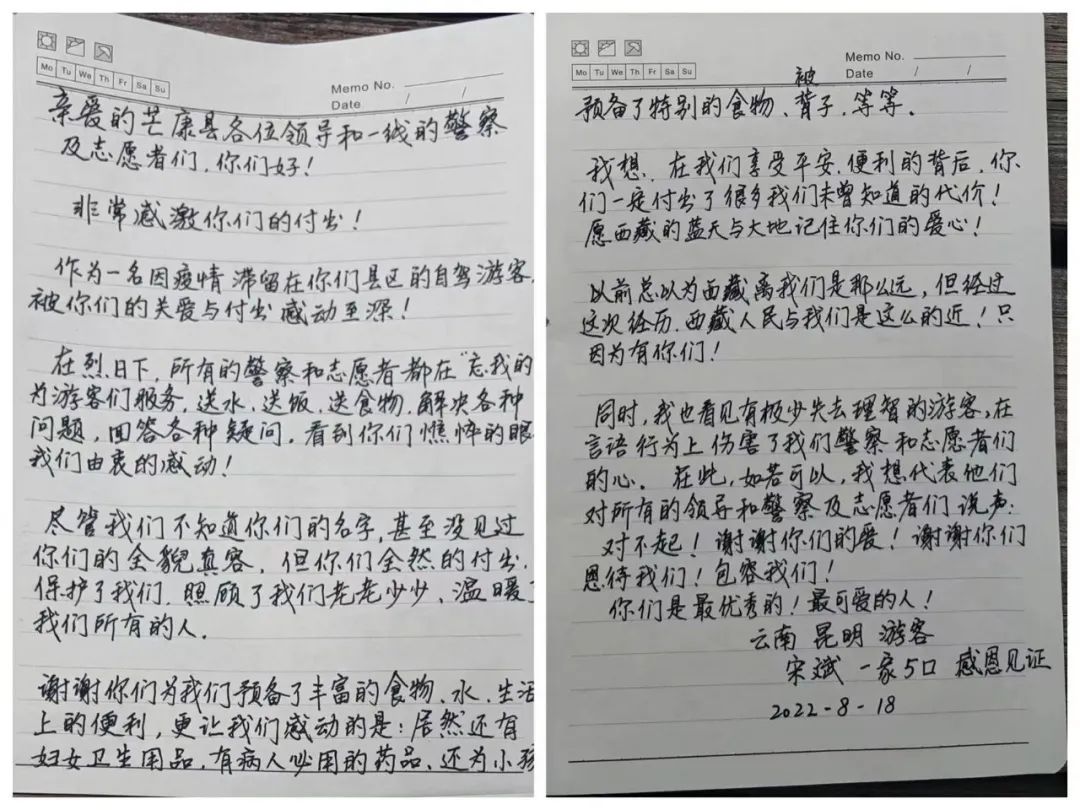 Mo Tu We Th Fr Sa Su
Memo No.
Date / /
亲爱的芒康县各位领导和一线的警察
及志愿者们,你们好!
非常感激你们的付出!
作为一名因疫情滞留在你们县区的自驾游客,
被你们的关爱与付出感动至深!
在烈日下,所有的警察和志愿者都在“忘我的
为游客们服务,送水,送饭,送食物,解决各种
问题,回答各种疑问,看到你们憔悴的眼
我们由衷的感动!
尽管我们不知道你们的名字,甚至没见过
你们的全貌真容,但你们全然的付出,
保护了我们,照顾了我们老老少少、温暖了
我们所有的人.
谢谢你们为我们预备了丰富的食物、水、生活
上的便利,更让我们感动的是:居然还有
妇女卫生用品,有病人必用的药品、还为小孩
Mo Tu We Th Fr Sa Su
Memo No.
Date / /
被
预备了特别的食物、背子,等等.
我想,在我们享受平安、便利的背后,你
们一定付出了很多我们未曾知道的代价!
愿西藏的蓝天与大地记住你们的爱心!
以前总以为西藏离我们是那么远,但经过
这次经历,西藏人民与我们是这么的近!只
因为有你们!
同时,我也看见有极少失去理智的游客,在
言语行为上伤害了我们警察和志愿者们
的心。在此,如若可以,我想代表他们
对所有的领导和警察及志愿者们说声:
对不起!谢谢你们的爱!谢谢你们
恩待我们!包容我们!
你们是最优秀的!最可爱的人!
云南 昆明 游客
宋斌 一家5口 感恩见证
2022-8-18